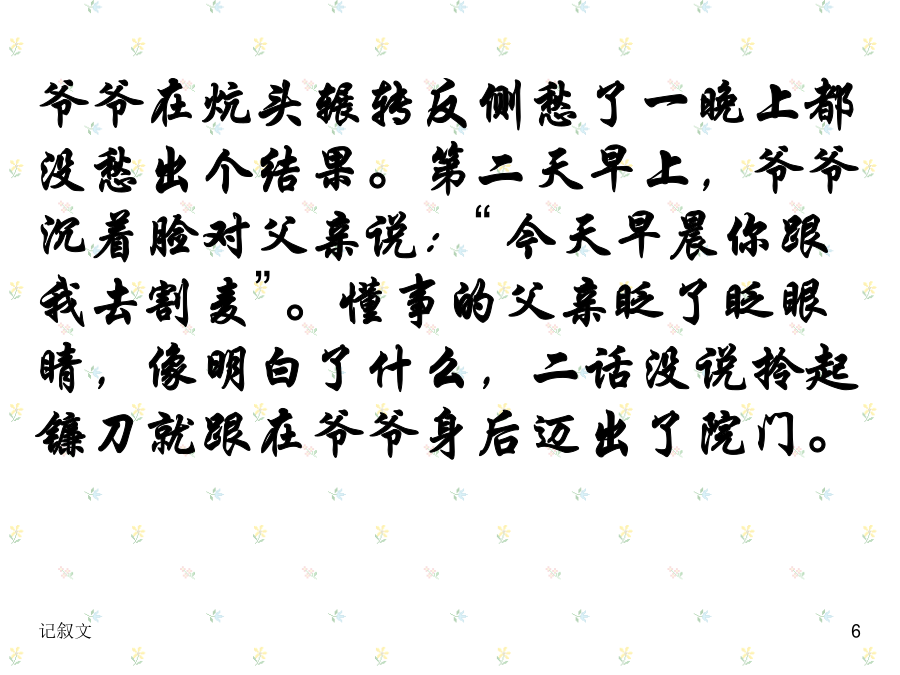 爷爷在炕头辗转反侧愁了一晚上都
没愁出个结果。第二天早上，爷爷
沉着脸对父亲说：“今天早晨你跟
我去割麦”。懂事的父亲眨了眨眼
睛，像明白了什么，二话没说拎起
镰刀就跟在爷爷身后迈出了院门。
记叙文
6